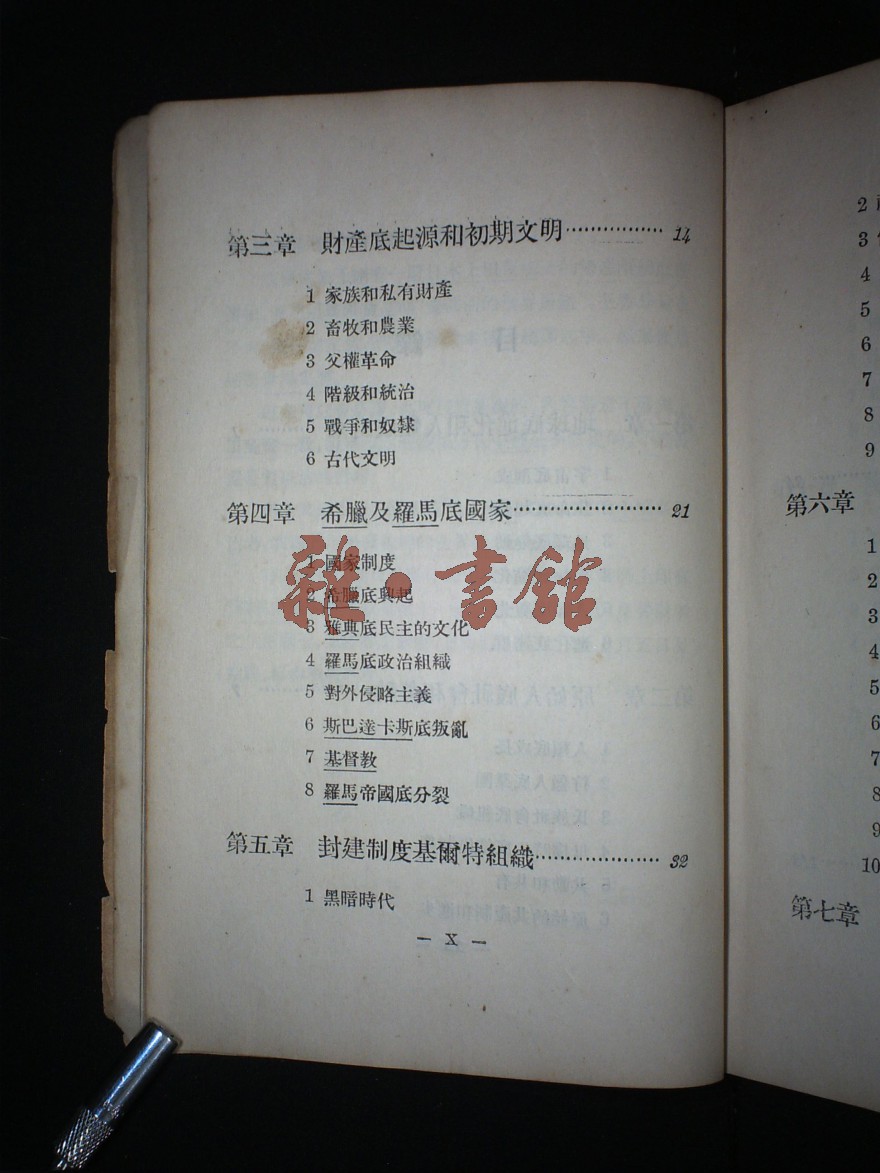 第三章 財產底起源和初期文明 ················ 14
1 家族和私有財產
2 畜牧和農業
3 父權革命
4 階級和統治
5 戰爭和奴隸
6 古代文明
第四章 希臘及羅馬底國家 ························ 21
1 國家制度
2 希臘底興起
3 雅典底民主的文化
4 羅馬底政治組織
5 對外侵略主義
6 斯巴達卡斯底叛亂
7 基督教
8 羅馬帝國底分裂
第五章 封建制度基爾特組織 ···················· 32
1 黑暗時代
— X —
雜·書館
2
3
4
5
6
7
8
9
第六章
1
2
3
4
5
6
7
8
9
10
第七章